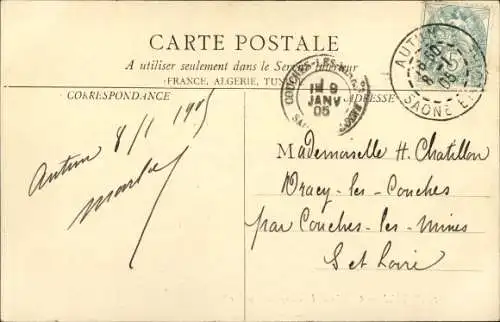 CARTE POSTALE
A utiliser seulement dans le Service Intérieur
FRANCE, ALGERIE, TUN
CORRESPONDANCE
ADRESSE
COUCHES-LES-MINES
9
JANV
05
AUTUN
8 -1
05
SAONE ET
5
Autun 8/1 1905
Mademoiselle H. Chatillon
Dracy-les-Couches
par Couches-les-Mines
S et Loire